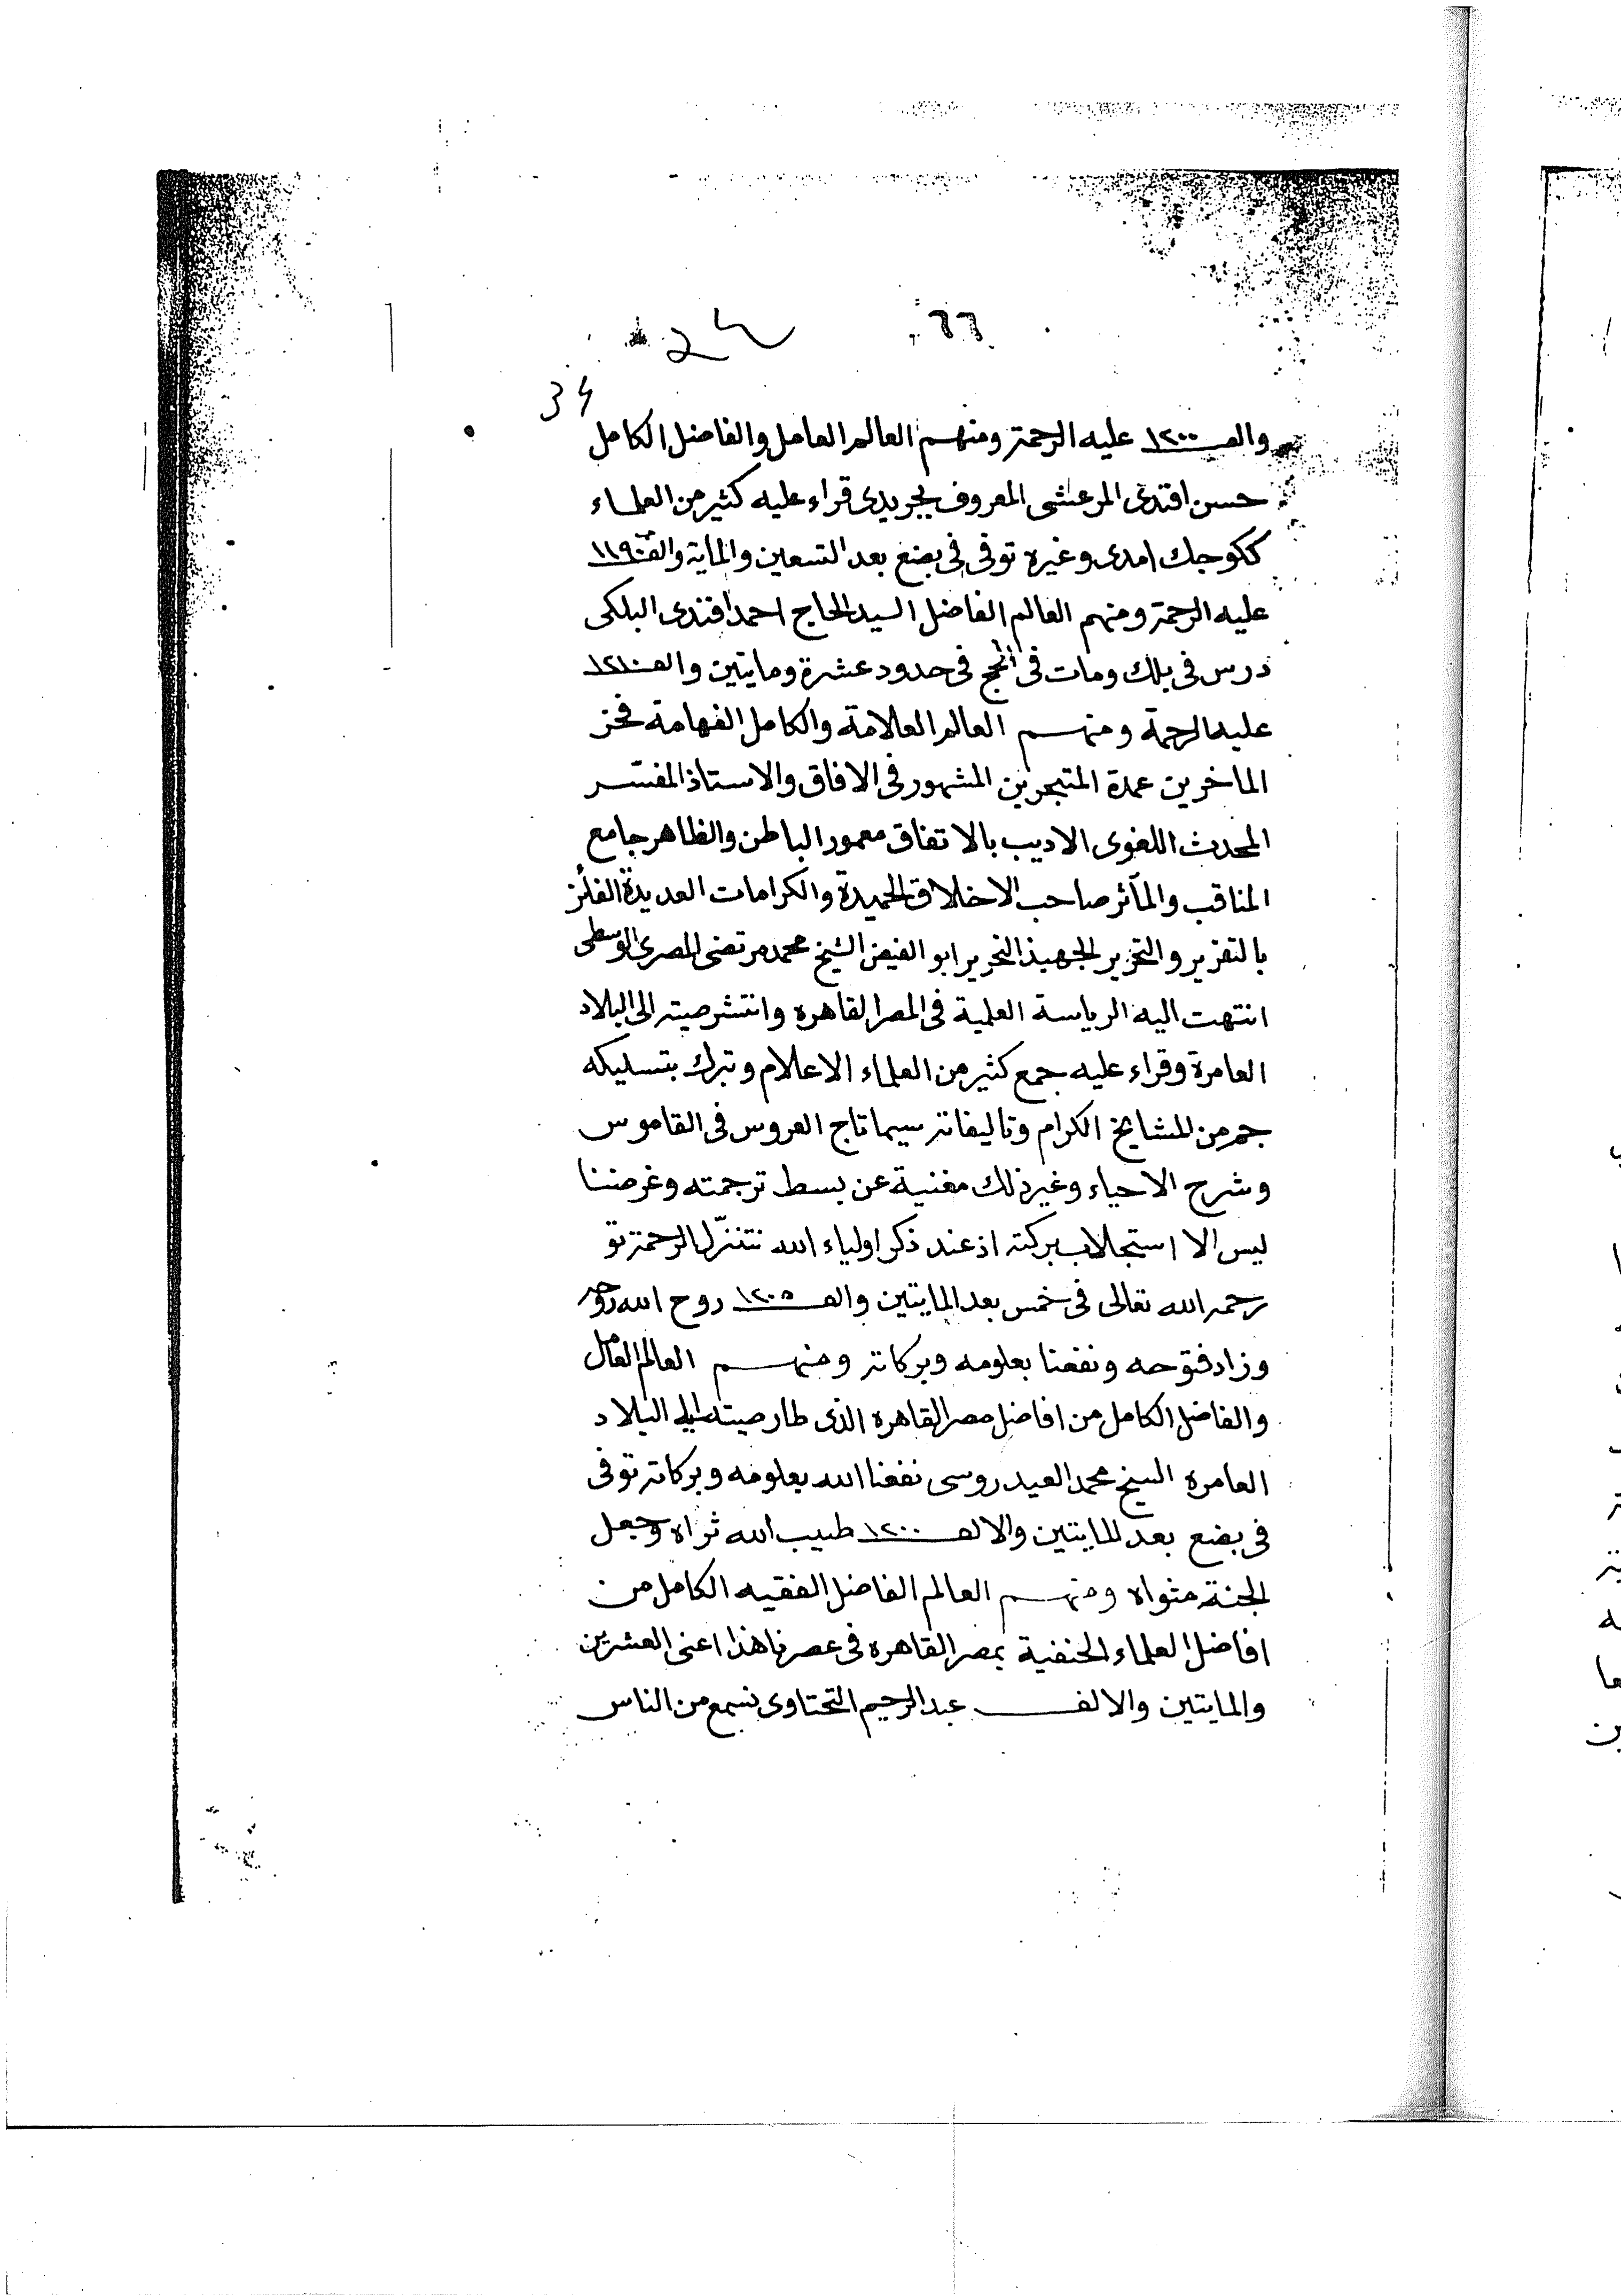 24
34
والف ١٢٠٠ عليه الرحمة ومنهم العالم العامل والفاضل الكامل
حسن افندى المرعشى المعروف بجريدى قراء عليه كثير من العلماء
ككوجك امدى وغيره توفى فى بضع بعد التسعين والماية والف ١١٩٠
عليه الرحمة ومنهم العالم الفاضل السيد الحاج احمد افندى البلكى
درس فى بلك ومات فى الحج فى حدود عشرة ومايتين والف ١٢١٠
عليه الرحمة ومنهم العالم العلامة والكامل الفهامة فخر
الماخرين عمدة المتبحرين المشهور فى الافاق والاستاذ المفسّر
المحدث اللغوى الاديب بالاتفاق معمور الباطن والظاهر جامع
المناقب والمآثر صاحب الاخلاق الحميدة والكرامات العديدة الفائز
بالتقرير والتحرير الجهبذ النحرير ابو الفيض الشيخ محمد مرتضى المصرى الوسطى
انتهت اليه الرياسة العلمية فى المصر القاهره وانتشر صيته الى البلاد
العامرة وقراء عليه جمع كثير من العلماء الاعلام وتبرك بتسليكه
جم من المشايخ الكرام وتاليفاته سيما تاج العروس فى القاموس
وشرح الاحياء وغير ذلك مغنية عن بسط ترجمته وغرضنا
ليس الا استجلاب بركته اذ عند ذكر اولياء الله تتنزّل الرحمة تو
رحمه الله تعالى فى خمس بعد المايتين والف ١٢٠٥ روح الله روحه
وزاد فتوحه ونفعنا بعلومه وبركاته ومنهم العالم العامل
والفاضل الكامل من افاضل مصر القاهره الذى طار صيته الى البلاد
العامره الشيخ محمد العيدروسى نفعنا الله بعلومه وبركاته توفى
فى بضع بعد المايتين والالف ١٢٠٠ طيب الله ثراه وجعل
الجنة مثواه ومنهم العالم الفاضل الفقيه الكامل من
افاضل العلماء الحنفية بمصر القاهره فى عصرنا هذا اعنى العشرين
والمايتين والالف عبد الرحيم التحتاوى نسمع من الناس